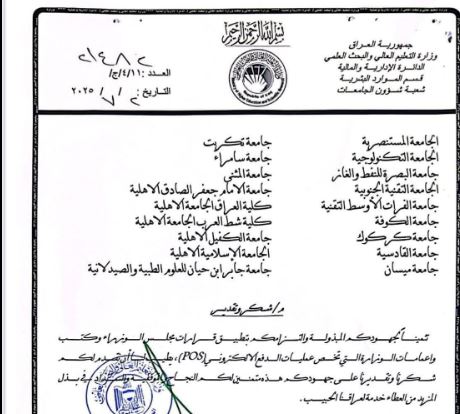 بسم الله الرحمن الرحيم
جمهورية العراق
وزارة التعليم العالي والبحث العلمي
الدائرة الإدارية والمالية
قسم الموارد البشرية
شعبة شؤون الجامعات
العدد: ج/٤/١١/
٢٤٨٢
التاريخ: ٢ / ٧ / ٢٠٢٥
الجامعة المستنصرية
الجامعة التكنولوجية
جامعة البصرة للنفط والغاز
الجامعة التقنية الجنوبية
جامعة الفرات الأوسط التقنية
جامعة الكوفة
جامعة كركوك
جامعة القادسية
جامعة ميسان
جامعة تكريت
جامعة سامراء
جامعة المثنى
جامعة الامام جعفر الصادق الاهلية
كلية العراق الجامعة الاهلية
كلية شط العرب الجامعة الاهلية
جامعة الكفيل الاهلية
الجامعة الإسلامية الاهلية
جامعة جابر ابن حيان للعلوم الطبية والصيدلانية
م/ شكر وتقدير
تثميناً لجهودكم المبذولة والتزامكم بتطبيق قرارات مجلس الوزراء وكتب
واعمامات الوزارة التي تخص عمليات الدفع الالكتروني (POS)، يطيب لنا أن نقدم لكم
شكرنا وتقديرنا على جهودكم هذه متمنين لكم النجاح في بذل
المزيد من العطاء خدمة لعراقنا الحبيب.